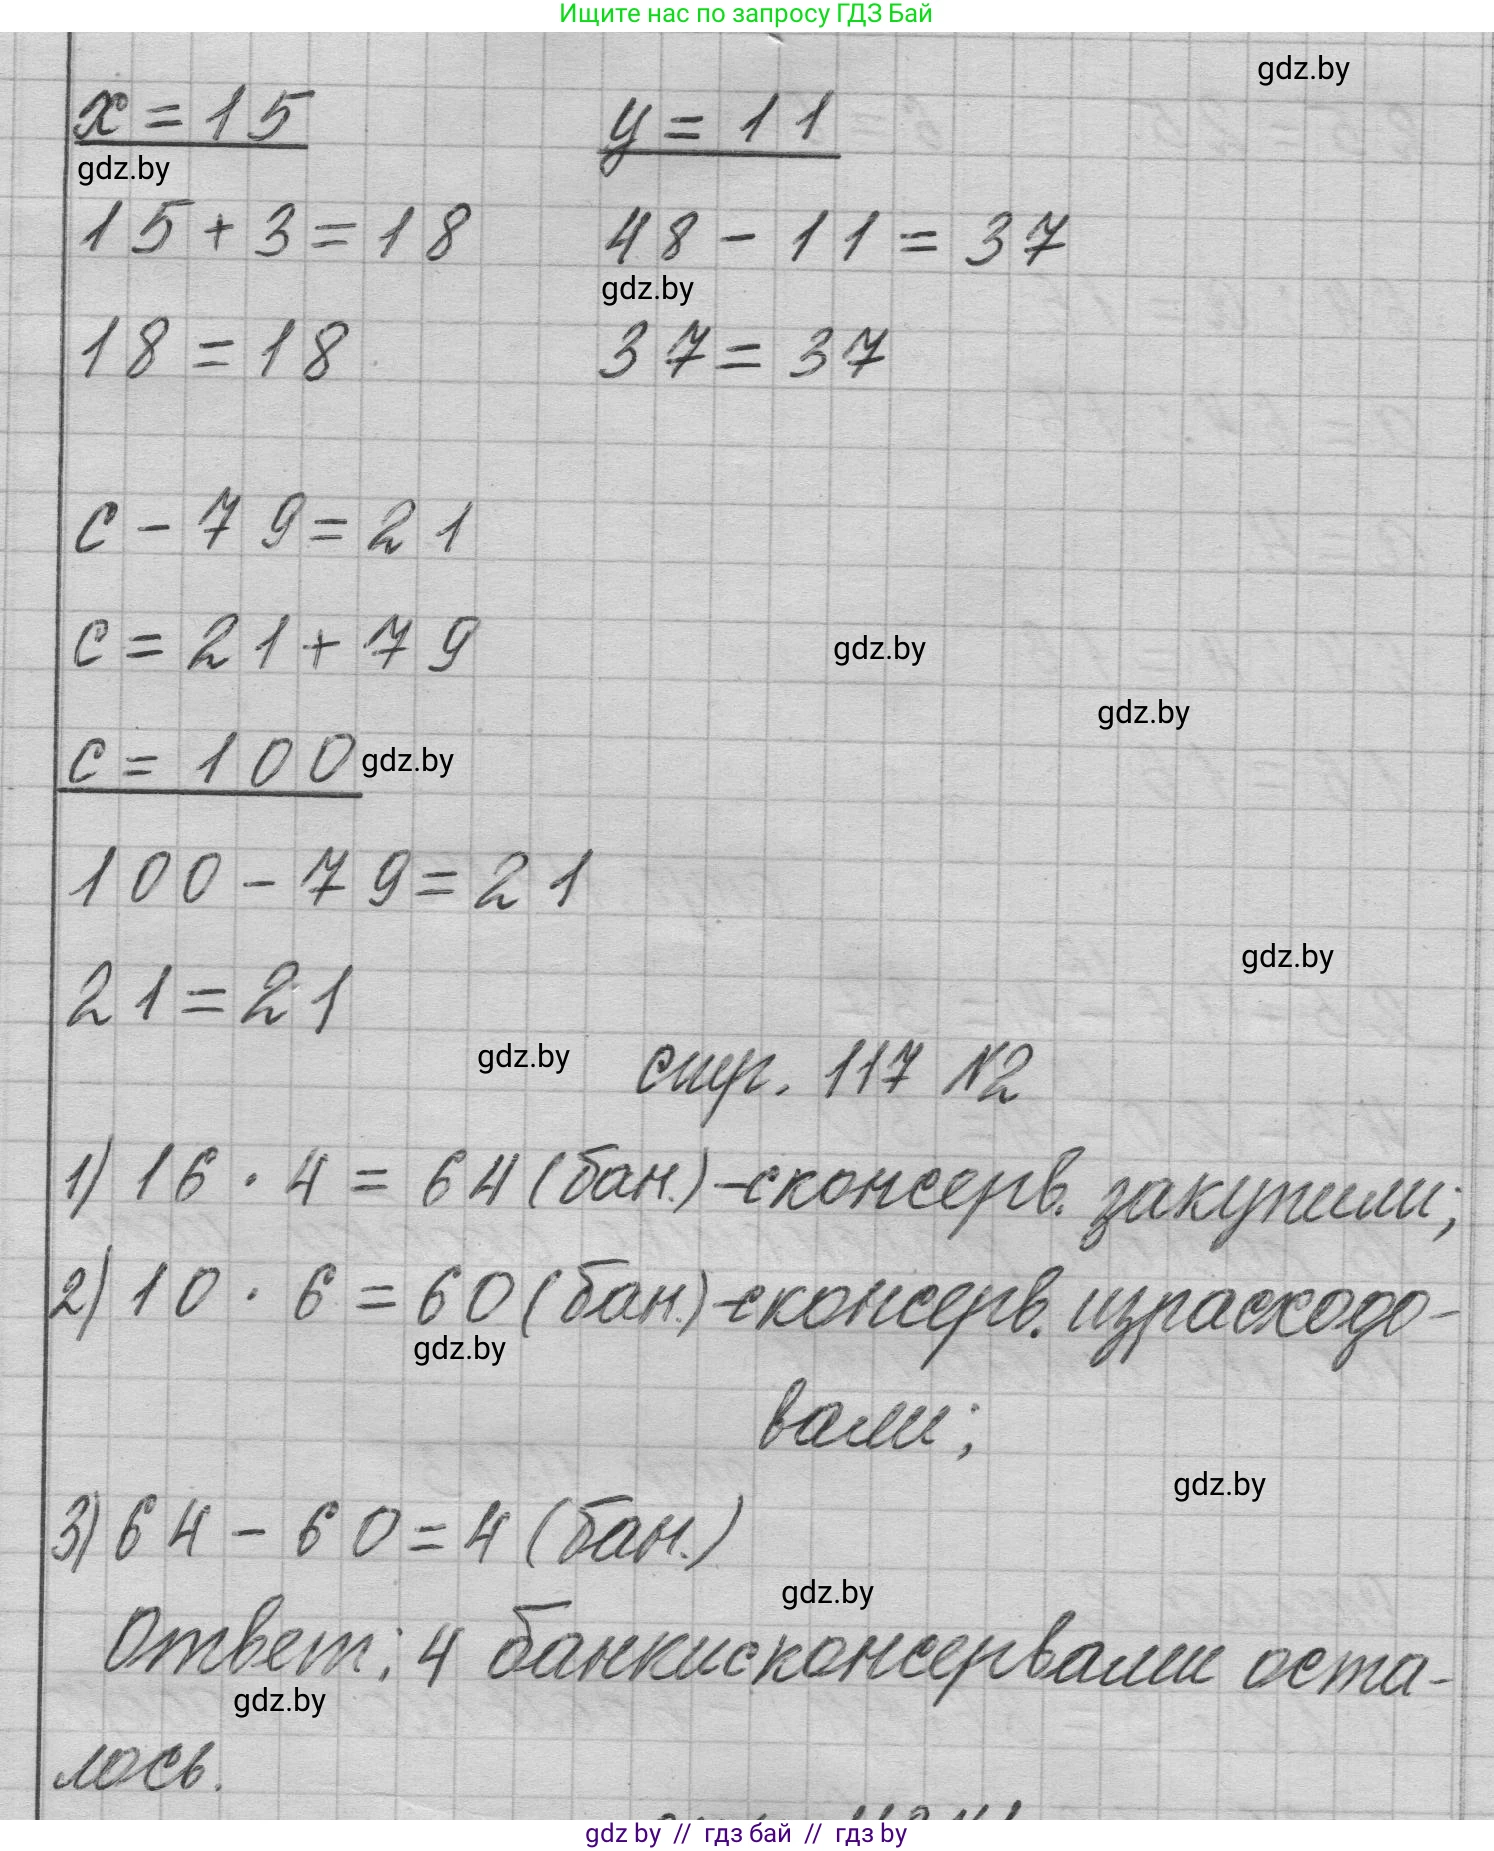 Ищите нас по запросу ГДЗ Бай
gdz.by
x = 15 y = 11
gdz.by
15 + 3 = 18 48 - 11 = 37
gdz.by
18 = 18 37 = 37
c - 79 = 21
c = 21 + 79
gdz.by
gdz.by
c = 100 gdz.by
100 - 79 = 21
gdz.by
21 = 21
gdz.by стр. 117 №2
1) 16 · 4 = 64 (бан.) - с консерв. закупили;
2) 10 · 6 = 60 (бан.) - с консерв. израсходо-
gdz.by
вали;
gdz.by
3) 64 - 60 = 4 (бан.)
gdz.by
Ответ: 4 банки с консервами оста-
gdz.by
лось.
gdz by // гдз бай // гдз by